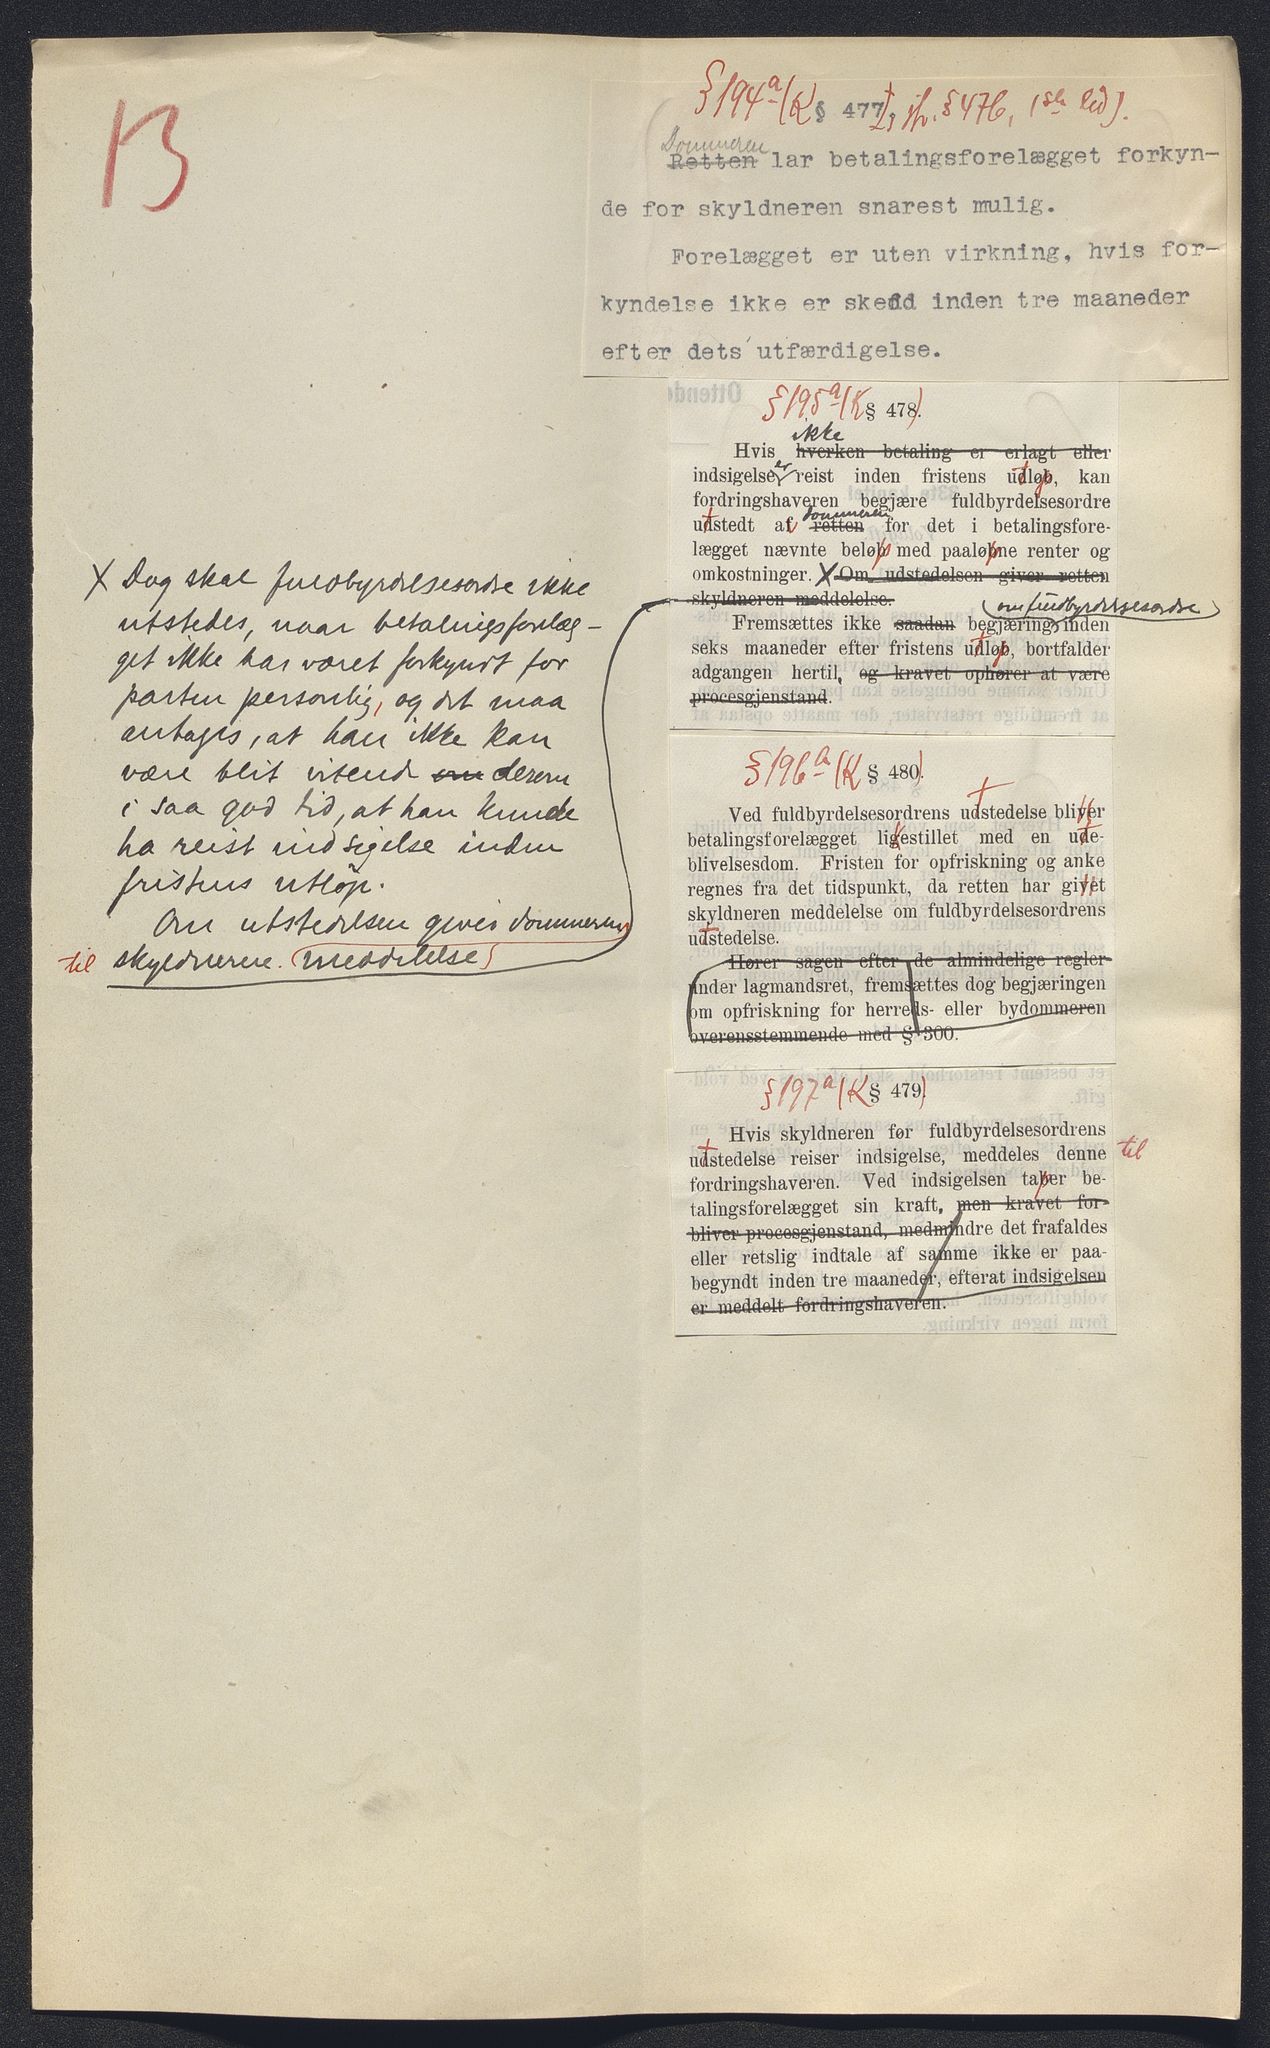 13
§ 194a (K § 477), jfr. § 476, 1ste led).
Dommeren
Retten lar betalingsforelægget forkyn-
de for skyldneren snarest mulig.
Forelægget er uten virkning, hvis for-
kyndelse ikke er skedd inden tre maaneder
efter dets utfærdigelse.
§ 195a (K § 478.)
ikke
Hvis hverken betaling er erlagt eller
indsigelse er reist inden fristens udløb, kan
fordringshaveren begjære fuldbyrdelsesordre
dommeren
udstedt af retten for det i betalingsfore-
lægget nævnte beløb med paaløbne renter og
omkostninger. X Om udstedelsen giver retten
skyldneren meddelelse.
om fuldbyrdelsesordre
Fremsættes ikke saadan begjæring inden
seks maaneder efter fristens udløb, bortfalder
adgangen hertil, og kravet ophører at være
procesgjenstand.
X Dog skal fuldbyrdelsesordre ikke
utstedes, naar betalingsforelæg-
get ikke har været forkyndt for
parten personlig, og det maa
antages, at han ikke kan
være blit vitende om derom
i saa god tid, at han kunde
ha reist indsigelse inden
fristens utløp.
Om utstedelsen gives dommeren
til skyldneren. meddelelse
§ 196a (K § 480).
Ved fuldbyrdelsesordrens udstedelse bliver
betalingsforelægget ligestillet med en ude-
blivelsesdom. Fristen for opfriskning og anke
regnes fra det tidspunkt, da retten har givet
skyldneren meddelelse om fuldbyrdelsesordrens
udstedelse.
Hører sagen efter de almindelige regler
under lagmandsret, fremsættes dog begjæringen
om opfriskning for herreds- eller bydommeren
overensstemmende med § 300.
§ 197a (K § 479).
Hvis skyldneren før fuldbyrdelsesordrens
udstedelse reiser indsigelse, meddeles denne til
fordringshaveren. Ved indsigelsen taber be-
talingsforelægget sin kraft, men kravet for-
bliver procesgjenstand, medmindre det frafaldes
eller retslig indtale af samme ikke er paa-
begyndt inden tre maaneder, efterat indsigelsen
er meddelt fordringshaveren.